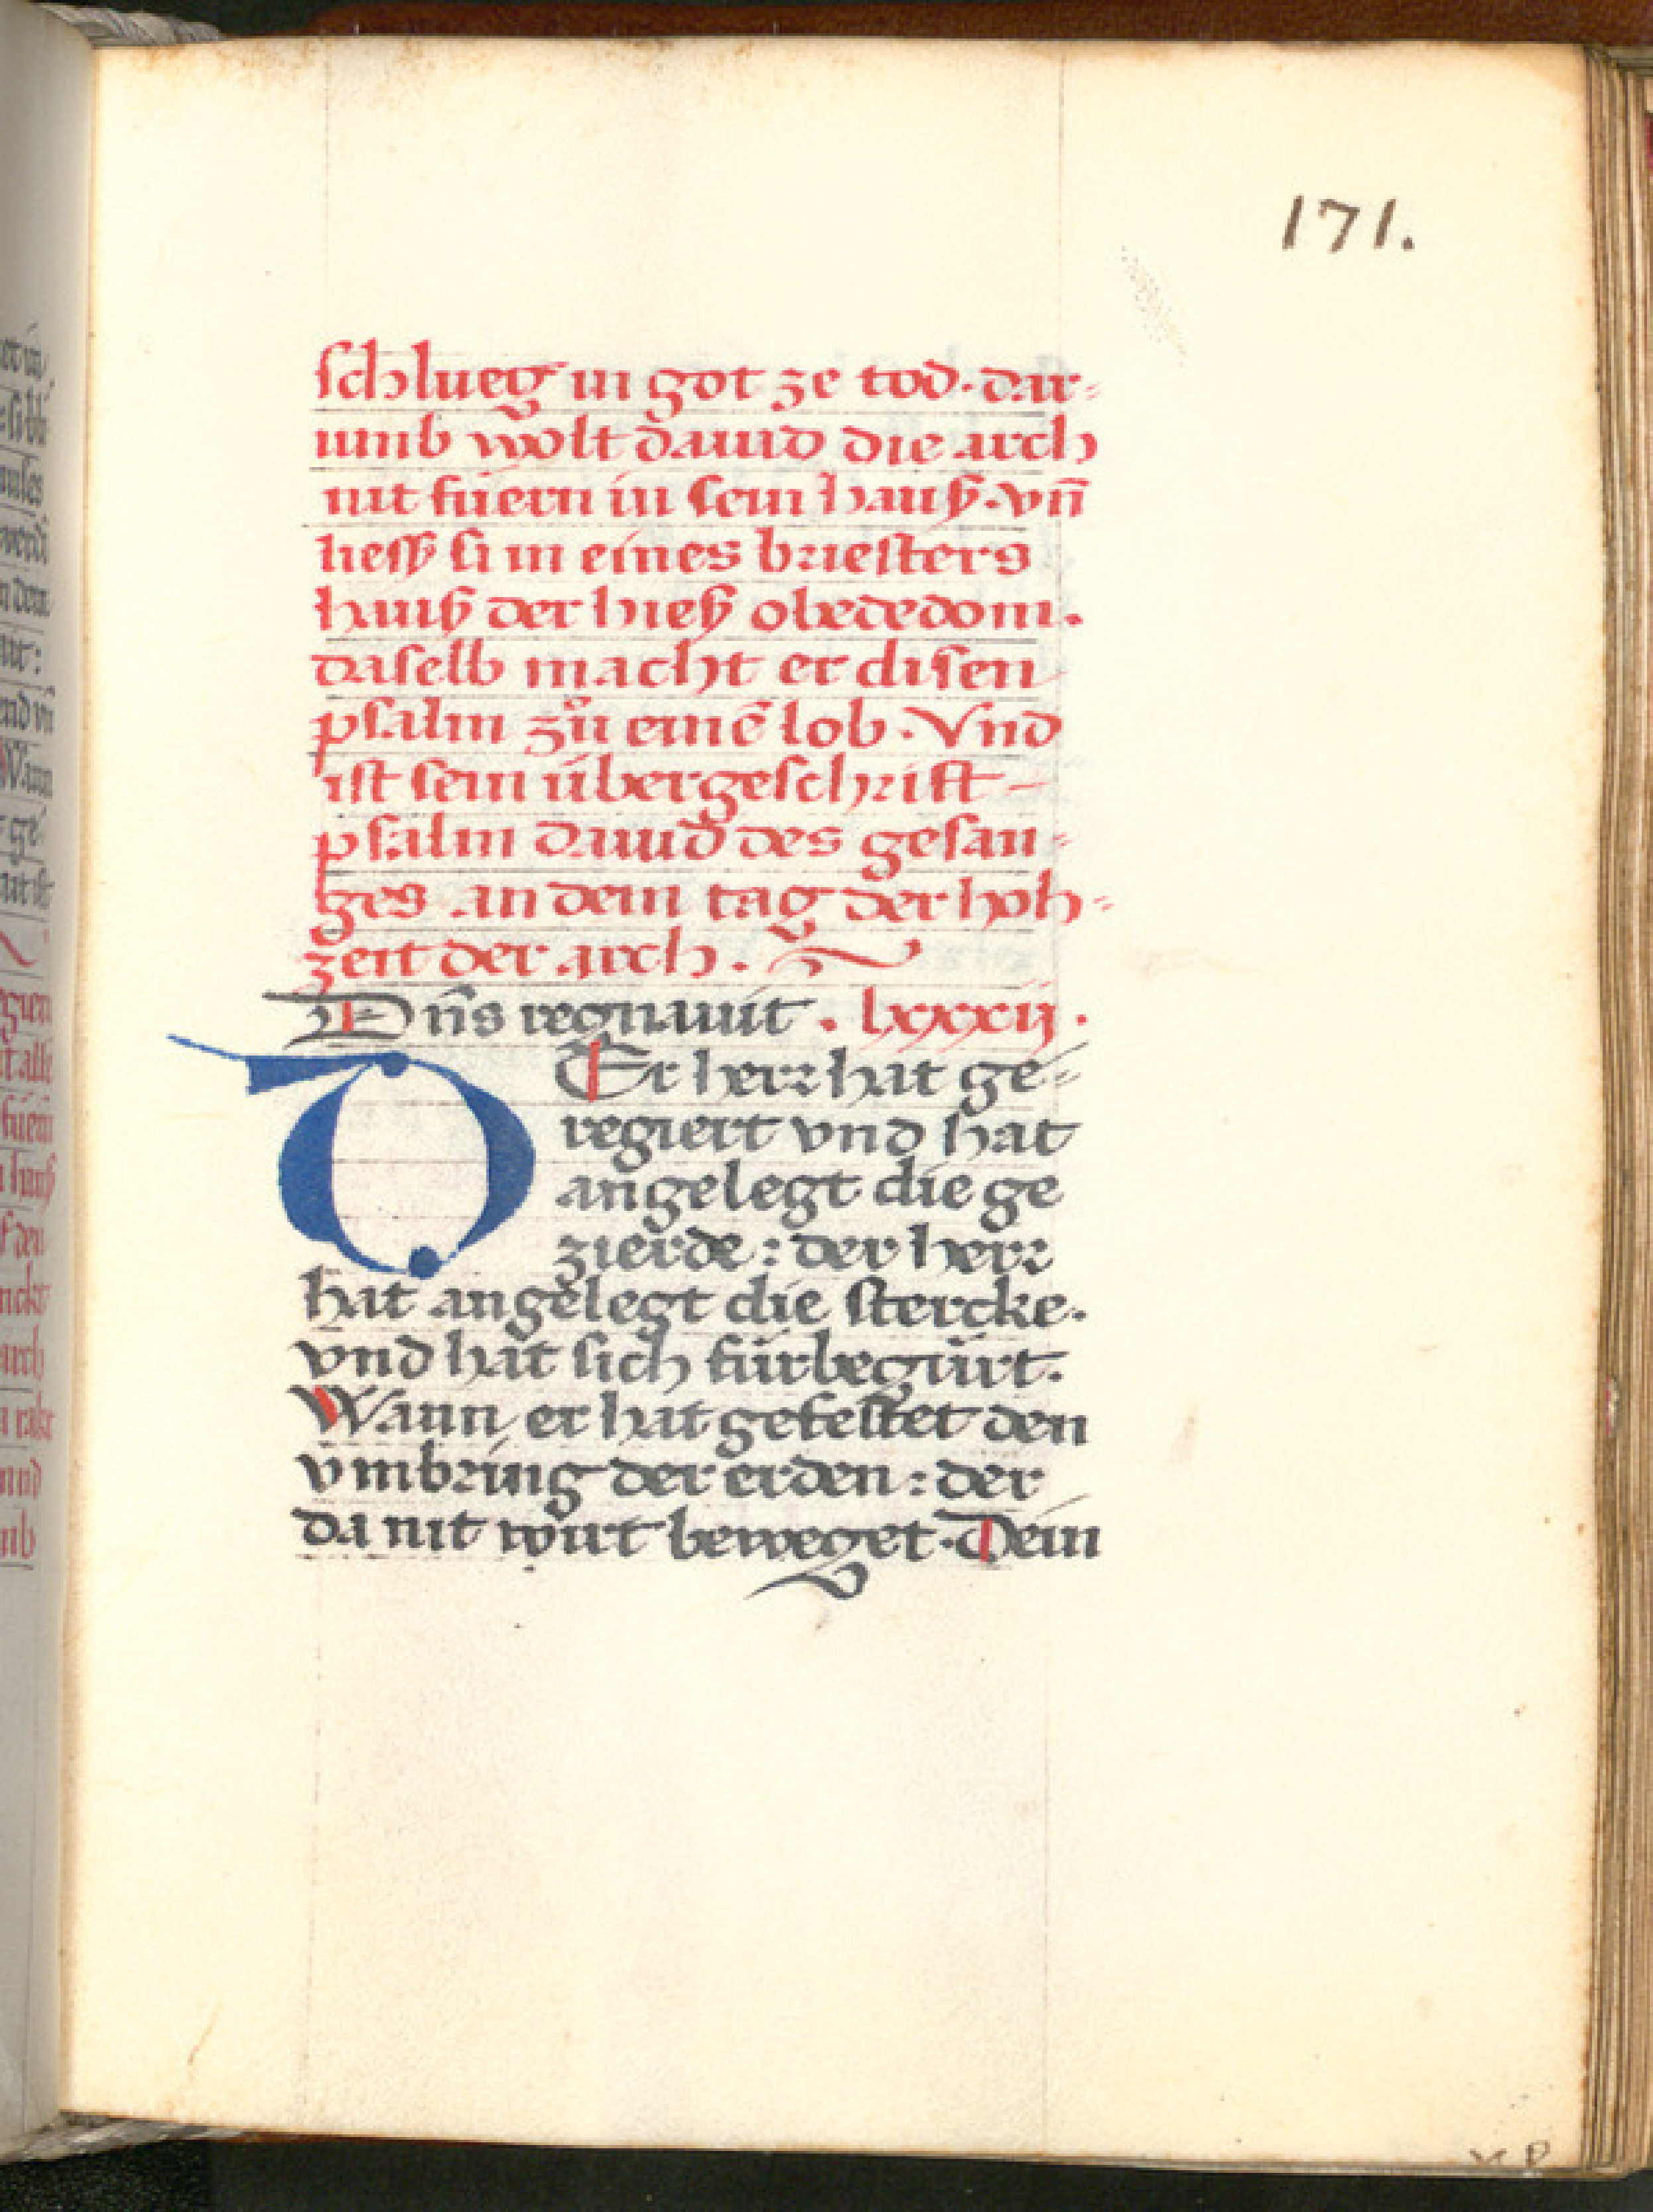 171.
schlueg in got ze tod. dar-
umb wolt dauid die arch
nit füern in sein hauß. vn̄
liess si in eines briesters
hauß der hieß obededom.
daselb macht er disen
psalm zů einē lob. Vnd
ist sein übergeschrift
psalm dauid des gesan-
ges an dem tag der hoh-
zeit der arch.
Dn̄s regnauit. lxxxxij.
DEr herr hat ge-
regiert vnd hat
angelegt die ge
zierde: der herr
hat angelegt die stercke.
vnd hat sich fürbegürt.
Wann er hat gefestet den
vmbring der erden: der
da nit wirt beweget. Dein